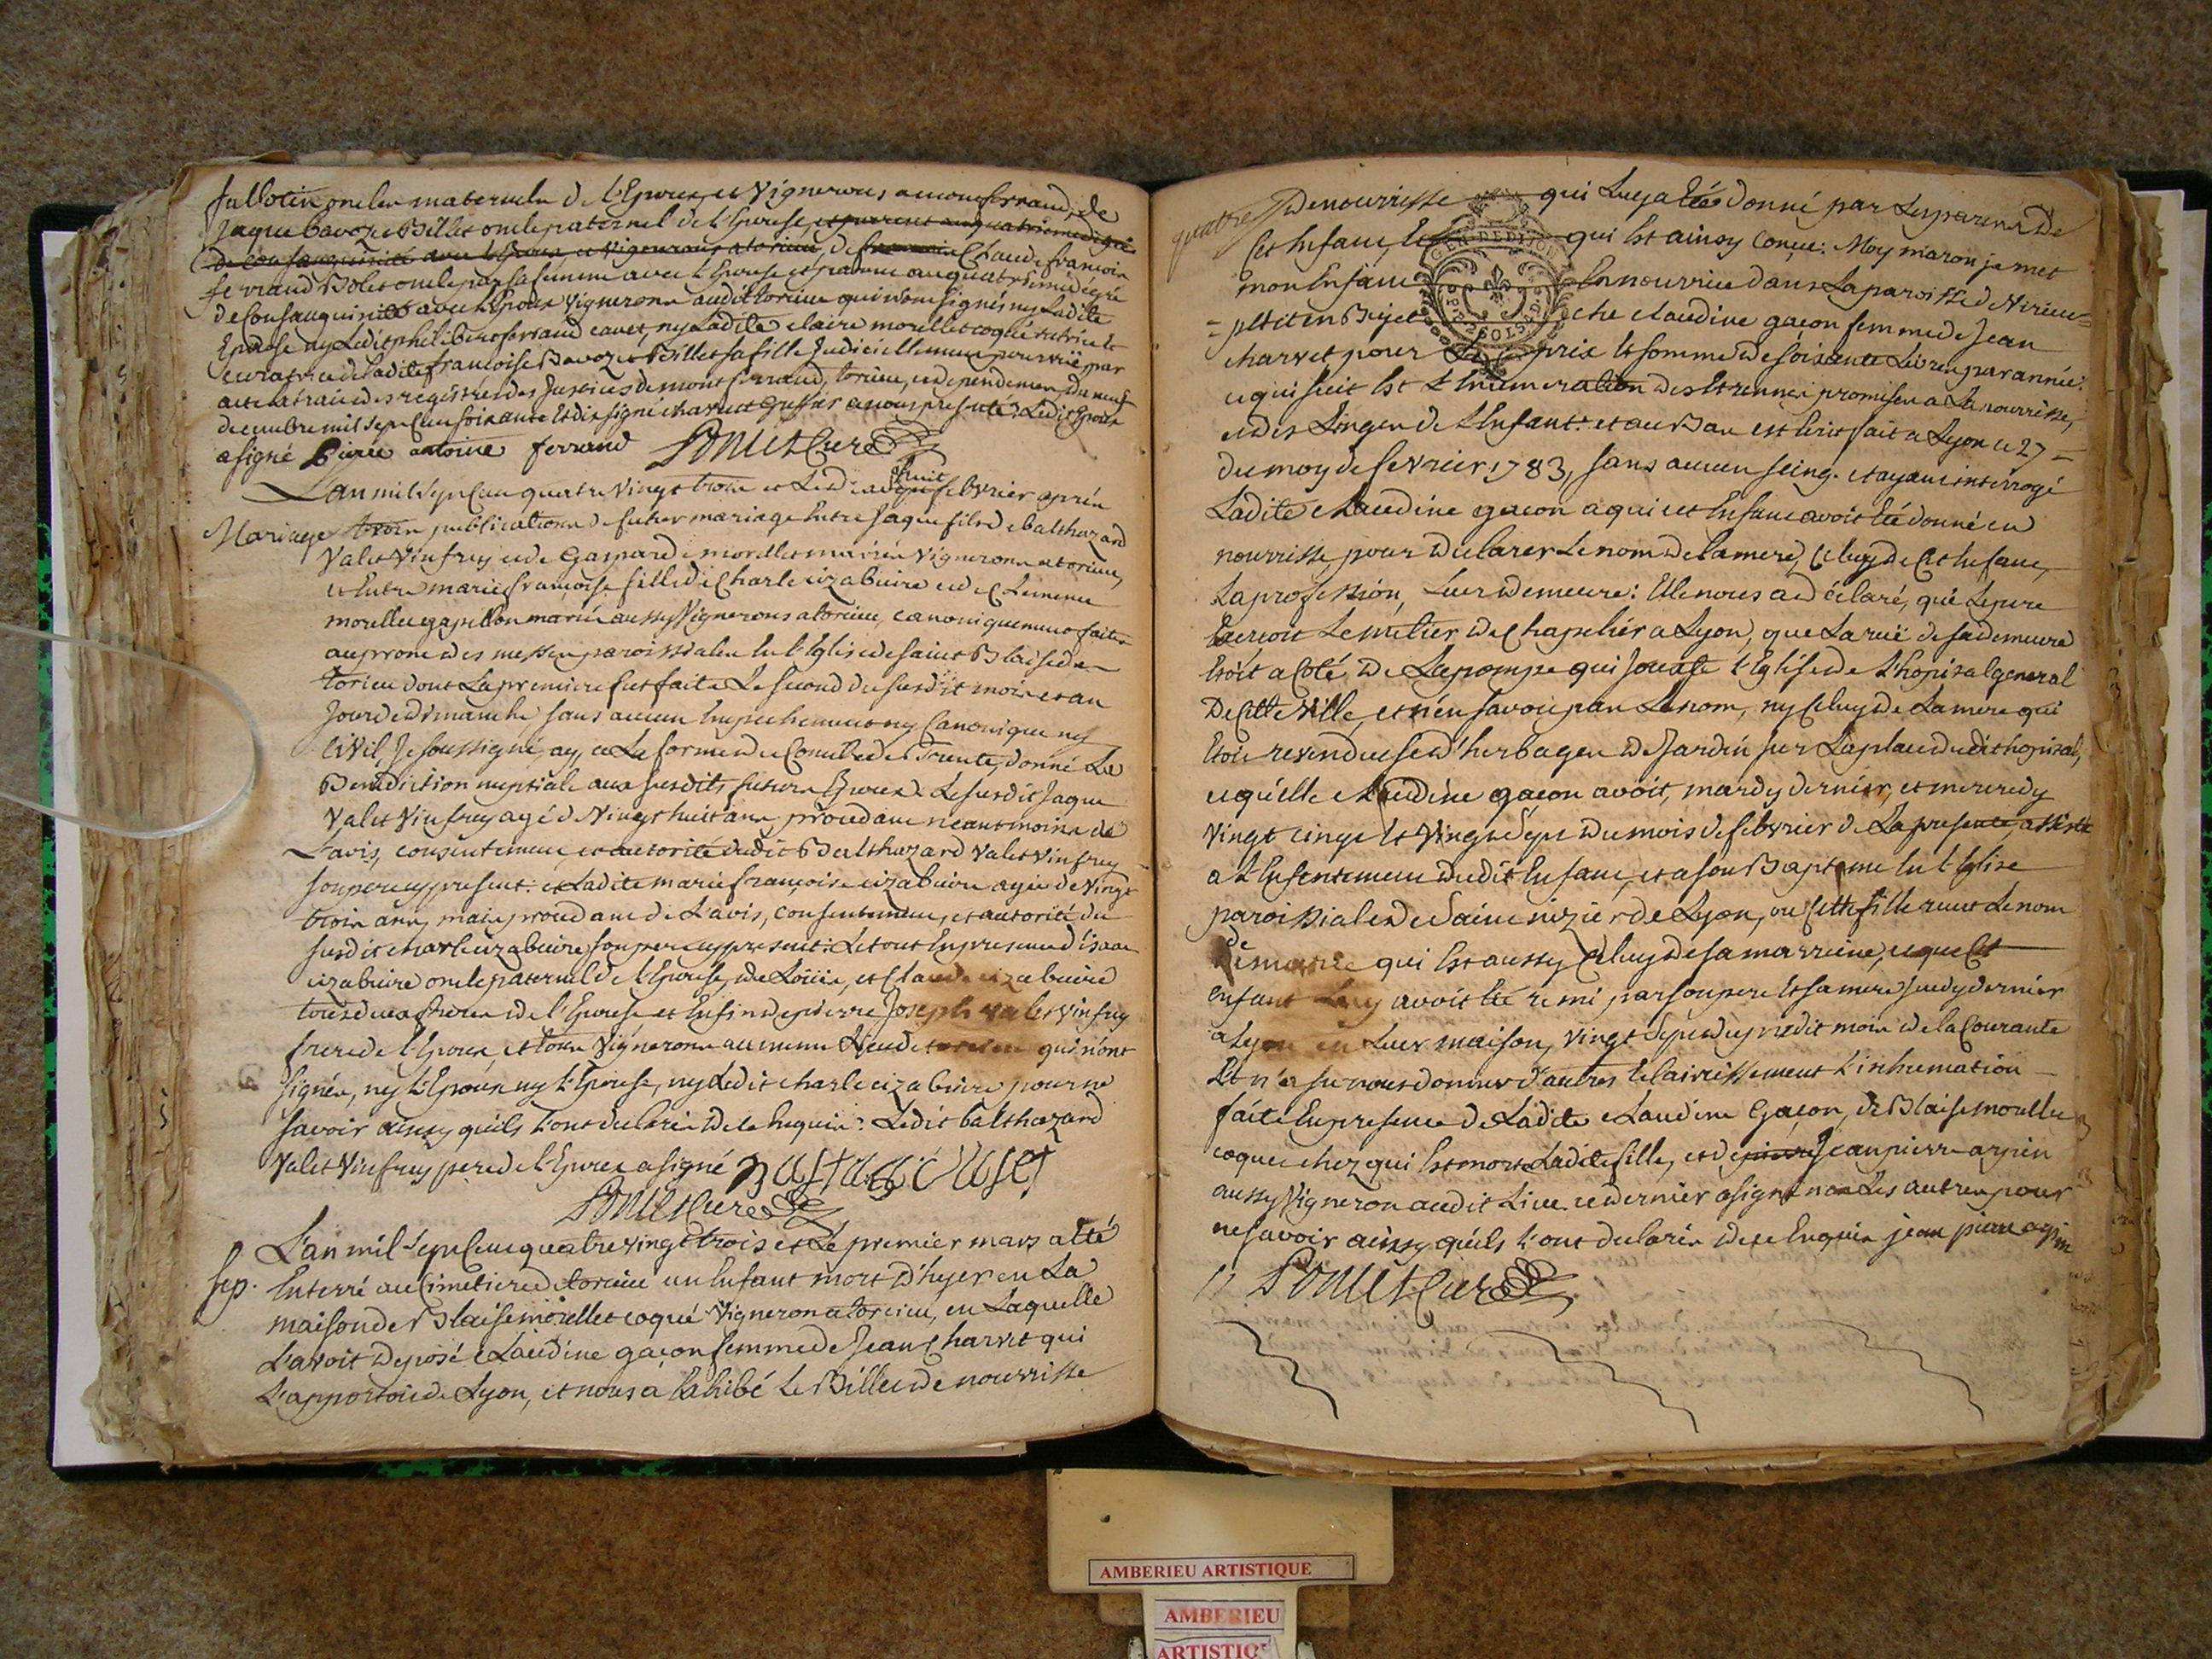 fallotin oncle maternele de l'Epoux, et Vignerons a montferrand, de
Jaque bavoze Billet oncle paternel de l'Epouse, et parent au quatrieme degré
de consanguinité avec l'Epoux et Vignerons a torcieu, de francois Claude francois
ferrand Bolet oncle par sa femme avec l'Epouse et parent au quatrieme degré
de Consanguinité avec l'Epoux Vignerons audit torcieu qui n'ont signés ny Ladite
Epouse ny Ledit philibert ferrand cavet, ny Ladite claire morellet coqué tutrice et
curatrice de Ladite francoise Bavoze Billet sa fille Judiciellement pourvüe par
acte extrait des registres des Justices de montferrand, torcieu, et dependences, du neuf
decembre mil sept Cens soixante et dix signé charvet greffier a nous presenté: Ledit Epoux
a signé Pierre antoine ferrand Ponuet Curé
L'an mil sept Cens quatre Vingt trois et Le dix huit febvrier aprés
Mariage trois publications de futur mariage Entre Jaque fils de balthazard
Valet Vinfrey et de Gasparde morellet mariés Vignerons a torcieu,
et Entre marie francoise fille de Charle cizabuire et de Clemence
morellet gapillon mariés aussy Vignerons a torcieu, canoniquement faites
au prone des messes paroissiales En l'Eglise de saint Blaise de
torcieu dont La premiere fut faite Le second du susdit mois et an
Jour de dimanche sans aucun Empechement ny Canonique ny
Civil, Je soussigné, ay, en La forme du Concile de Trente, donné La
Benediction nuptiale aux susdits futurs Epoux: Le susdit Jaque
Valet Vinfrey agé de Vingt huit ans procedant neantmoins de
L'avis, consentement et autorité dudit Balthazard Valet Vinfrey
son pere cy present: et Ladite marie françoise cizabuire agée de Vingt
trois ans, mais procedant de L'avis, consentement, et autorité du
susdit charle cizabuire son pere cy present: Le tout En presence d'isaac
cizabuire oncle paternel de l'Epouse, de Loüis, et Claude cizabuire
tous deux freres de l'Epouse et Enfin de pierre Joseph valet Vinfrey
frere de l'Epoux, et tous Vignerons au meme Lieu de torcieu qui n'ont
signés, ny l'Epoux ny l'Epouse, ny Ledit charle cizabuire pour ne
savoir ainsy qu'ils L'ont declarés de ce Enquis: Ledit balthazard
Valet Vinfrey pere de l'Epoux a signé
Ponuet Curé
L'an mil sept Cens quatre vingt trois et Le premier mars a eté
sep. Enterré au Cimetiere de torcieu un Enfant mort d'hyer en La
maison de Blaise morellet coqué Vigneron a torcieu, en Laquelle
L'avoit deposé Claudine gaçon femme de Jean Charvet qui
L'apportoit de Lyon, et nous a Exhibé Le Billet de nourrisse
quatre
de nourrisse qui Luy a Eté donné par Les parens de
Cet Enfant, Et qui Est ainsy Conçue: Moy maron je met
mon Enfant En nourrice dans La paroisse de Nivieu
petit en Bujet che claudine gaçon femme de Jean
charvet pour Le prix Et somme de soixante Livres par année:
ce qui suit Est L'Enumeration des Etrennes promises a La nourrisse,
et des Linges de l'Enfant: et au Bas est Ecrit fait a Lyon ce 27
du moy de fevrier 1783, sans aucun seing. et ayant interrogé
Ladite claudine gacon a qui cet Enfant avoit Eté donné en
nourrisse pour declarer Le nom de la mere, Celuy de Cet Enfant,
La profession, Leur demeure: Elle nous a declaré, que Le pere
Exercoit Le métier de Chapelier a Lyon, que La ruë de sa demeure
Etoit a Coté de La pompe qui Jouxte l'Eglise de L'hopital general
De Cette Ville, et n'en savoir pas Le nom, ny Celuy de La mere qui
Etoit revendeuse d'herbages de Jardin sur La place dudit hopital,
et qu'elle claudine gacon avoit, mardy dernier, et mercredy
vingt cinqe Et Vingt Sept du mois de febvrier de La presente, assisté
a L'Enfentement dudit Enfant, et a son Baptome En l'Eglise
paroissiale de Saint nizier de Lyon, ou Cette fille recut Le nom
de marie qui Est aussy Celuy de sa marreine, et que Cet
Enfant Luy avoit Eté remi par son pere Et sa mere Jeudy dernier
a Lyon en Leur maison, vingt Sept du predit mois de la Courante
Et n'a su nous donner d'autres Eclaircissement L'inhumation
faite En presence de Ladite claudine Gaçon, de Blaise morellet
coque chez qui Est mort Ladite fille, et de pierre Jean pierre arpin
aussy Vigneron audit Lieu. ce dernier a signé non Les autres pour
ne savoir ainsy qu'ils L'ont declarés de ce Enquis jean pierre arpin
Ponuet Curé
AMBERIEU ARTISTIQUE
AMBERIEU
ARTISTIQ